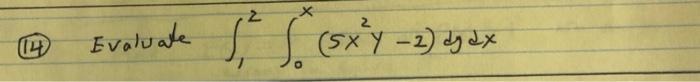 (14) Evaluate ∫₁² ∫₀ˣ (5x²y - 2) dy dx